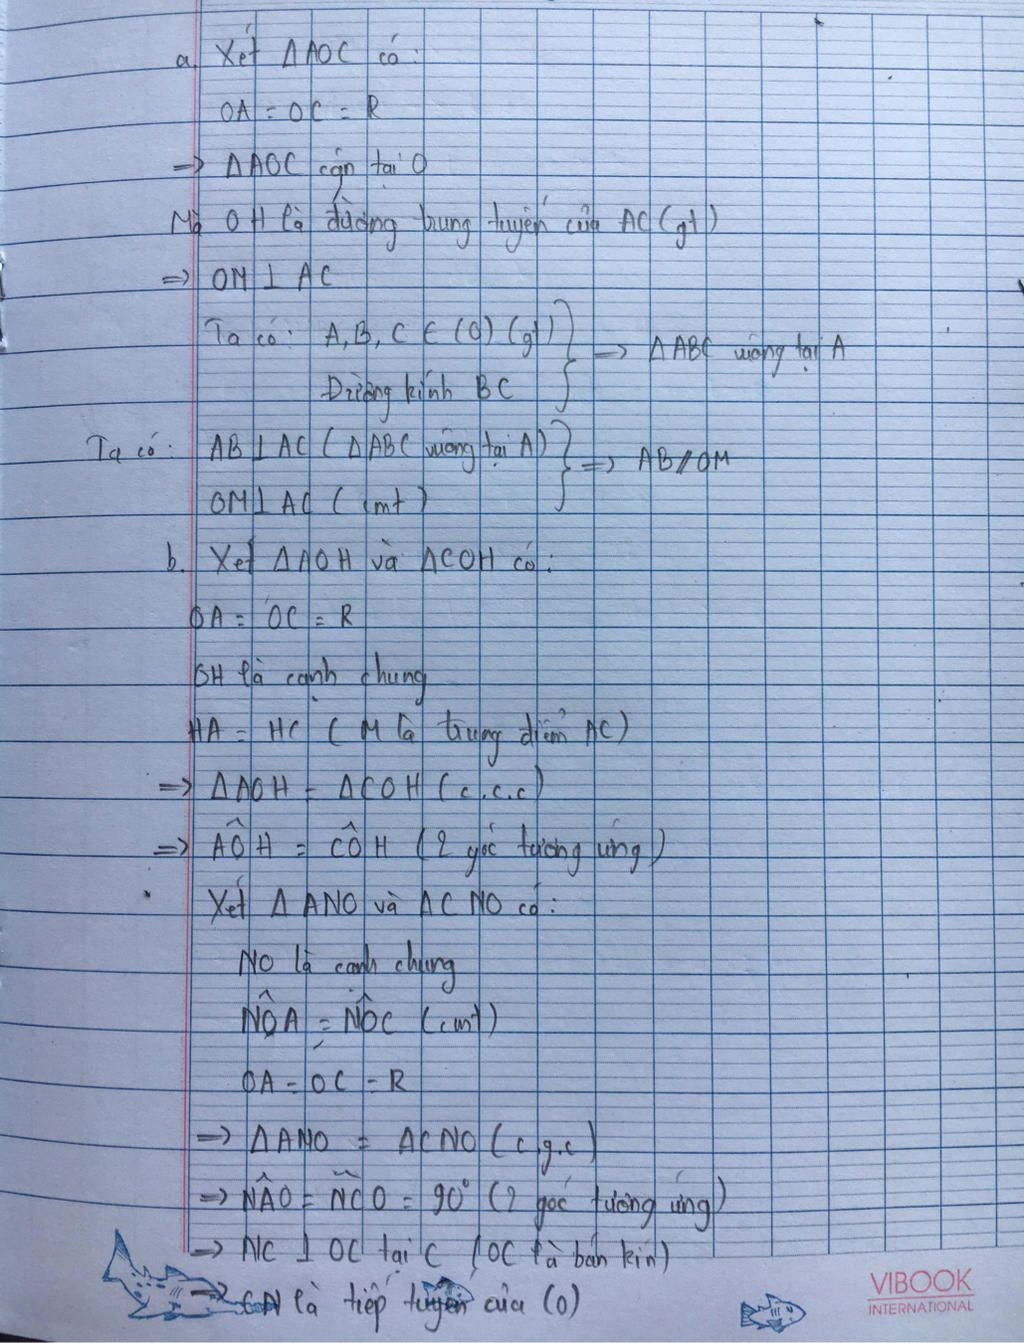 a. Xét ΔAOC có:
OA = OC = R
=> ΔAOC cân tại O
Mà OH là đường trung tuyến của AC (gt)
=> OM ⊥ AC
Ta có: A, B, C ∈ (O) (gt) } => ΔABC vuông tại A
Đường kính BC
Ta có: AB ⊥ AC (ΔABC vuông tại A) } => AB // OM
OM ⊥ AC (cmt)
b. Xét ΔAOH và ΔCOH có:
OA = OC = R
OH là cạnh chung
HA = HC (M là trung điểm AC)
=> ΔAOH = ΔCOH (c.c.c)
=> AÔH = CÔH (2 góc tương ứng)
Xét ΔANO và ΔCNO có:
NO là cạnh chung
NÔA = NÔC (cmt)
OA = OC = R
=> ΔANO = ΔCNO (c.g.c)
=> NÂO = NĈO = 90° (2 góc tương ứng)
=> NC ⊥ OC tại C (OC là bán kín)
=> CN là tiếp tuyến của (O)
VIBOOK
INTERNATIONAL